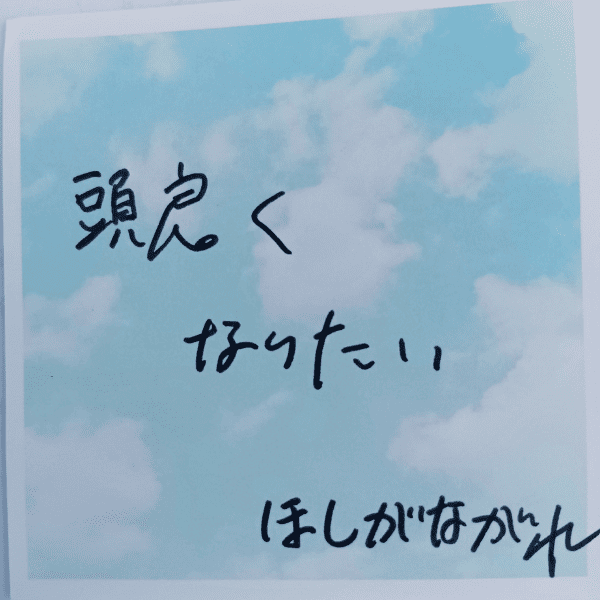 頭良く
なりたい
ほしがながれ